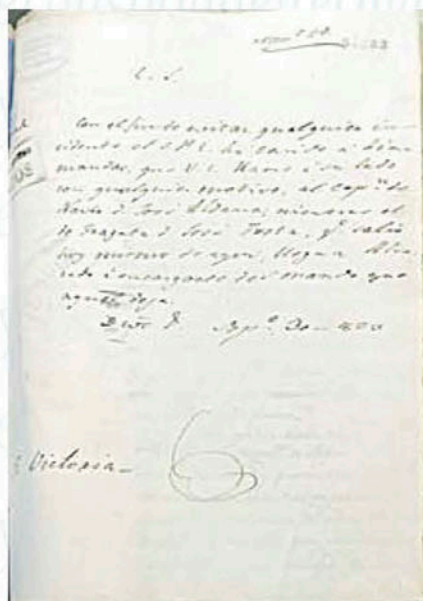 E. S.
Con el fin de evitar qualquiera in-
cidente el S. P. E. ha tenido a bien
mandar, que V. E. llame a su lado
con qualquier motivo, al Cap.n de
Navio D. José Aldana; mientras el
de Fragata D. José Tosta, q.e salio
hoy mismo de aqui, llega a Alva-
rado a encargarse del mando que
aquel deja.
Dios &.
Victoria